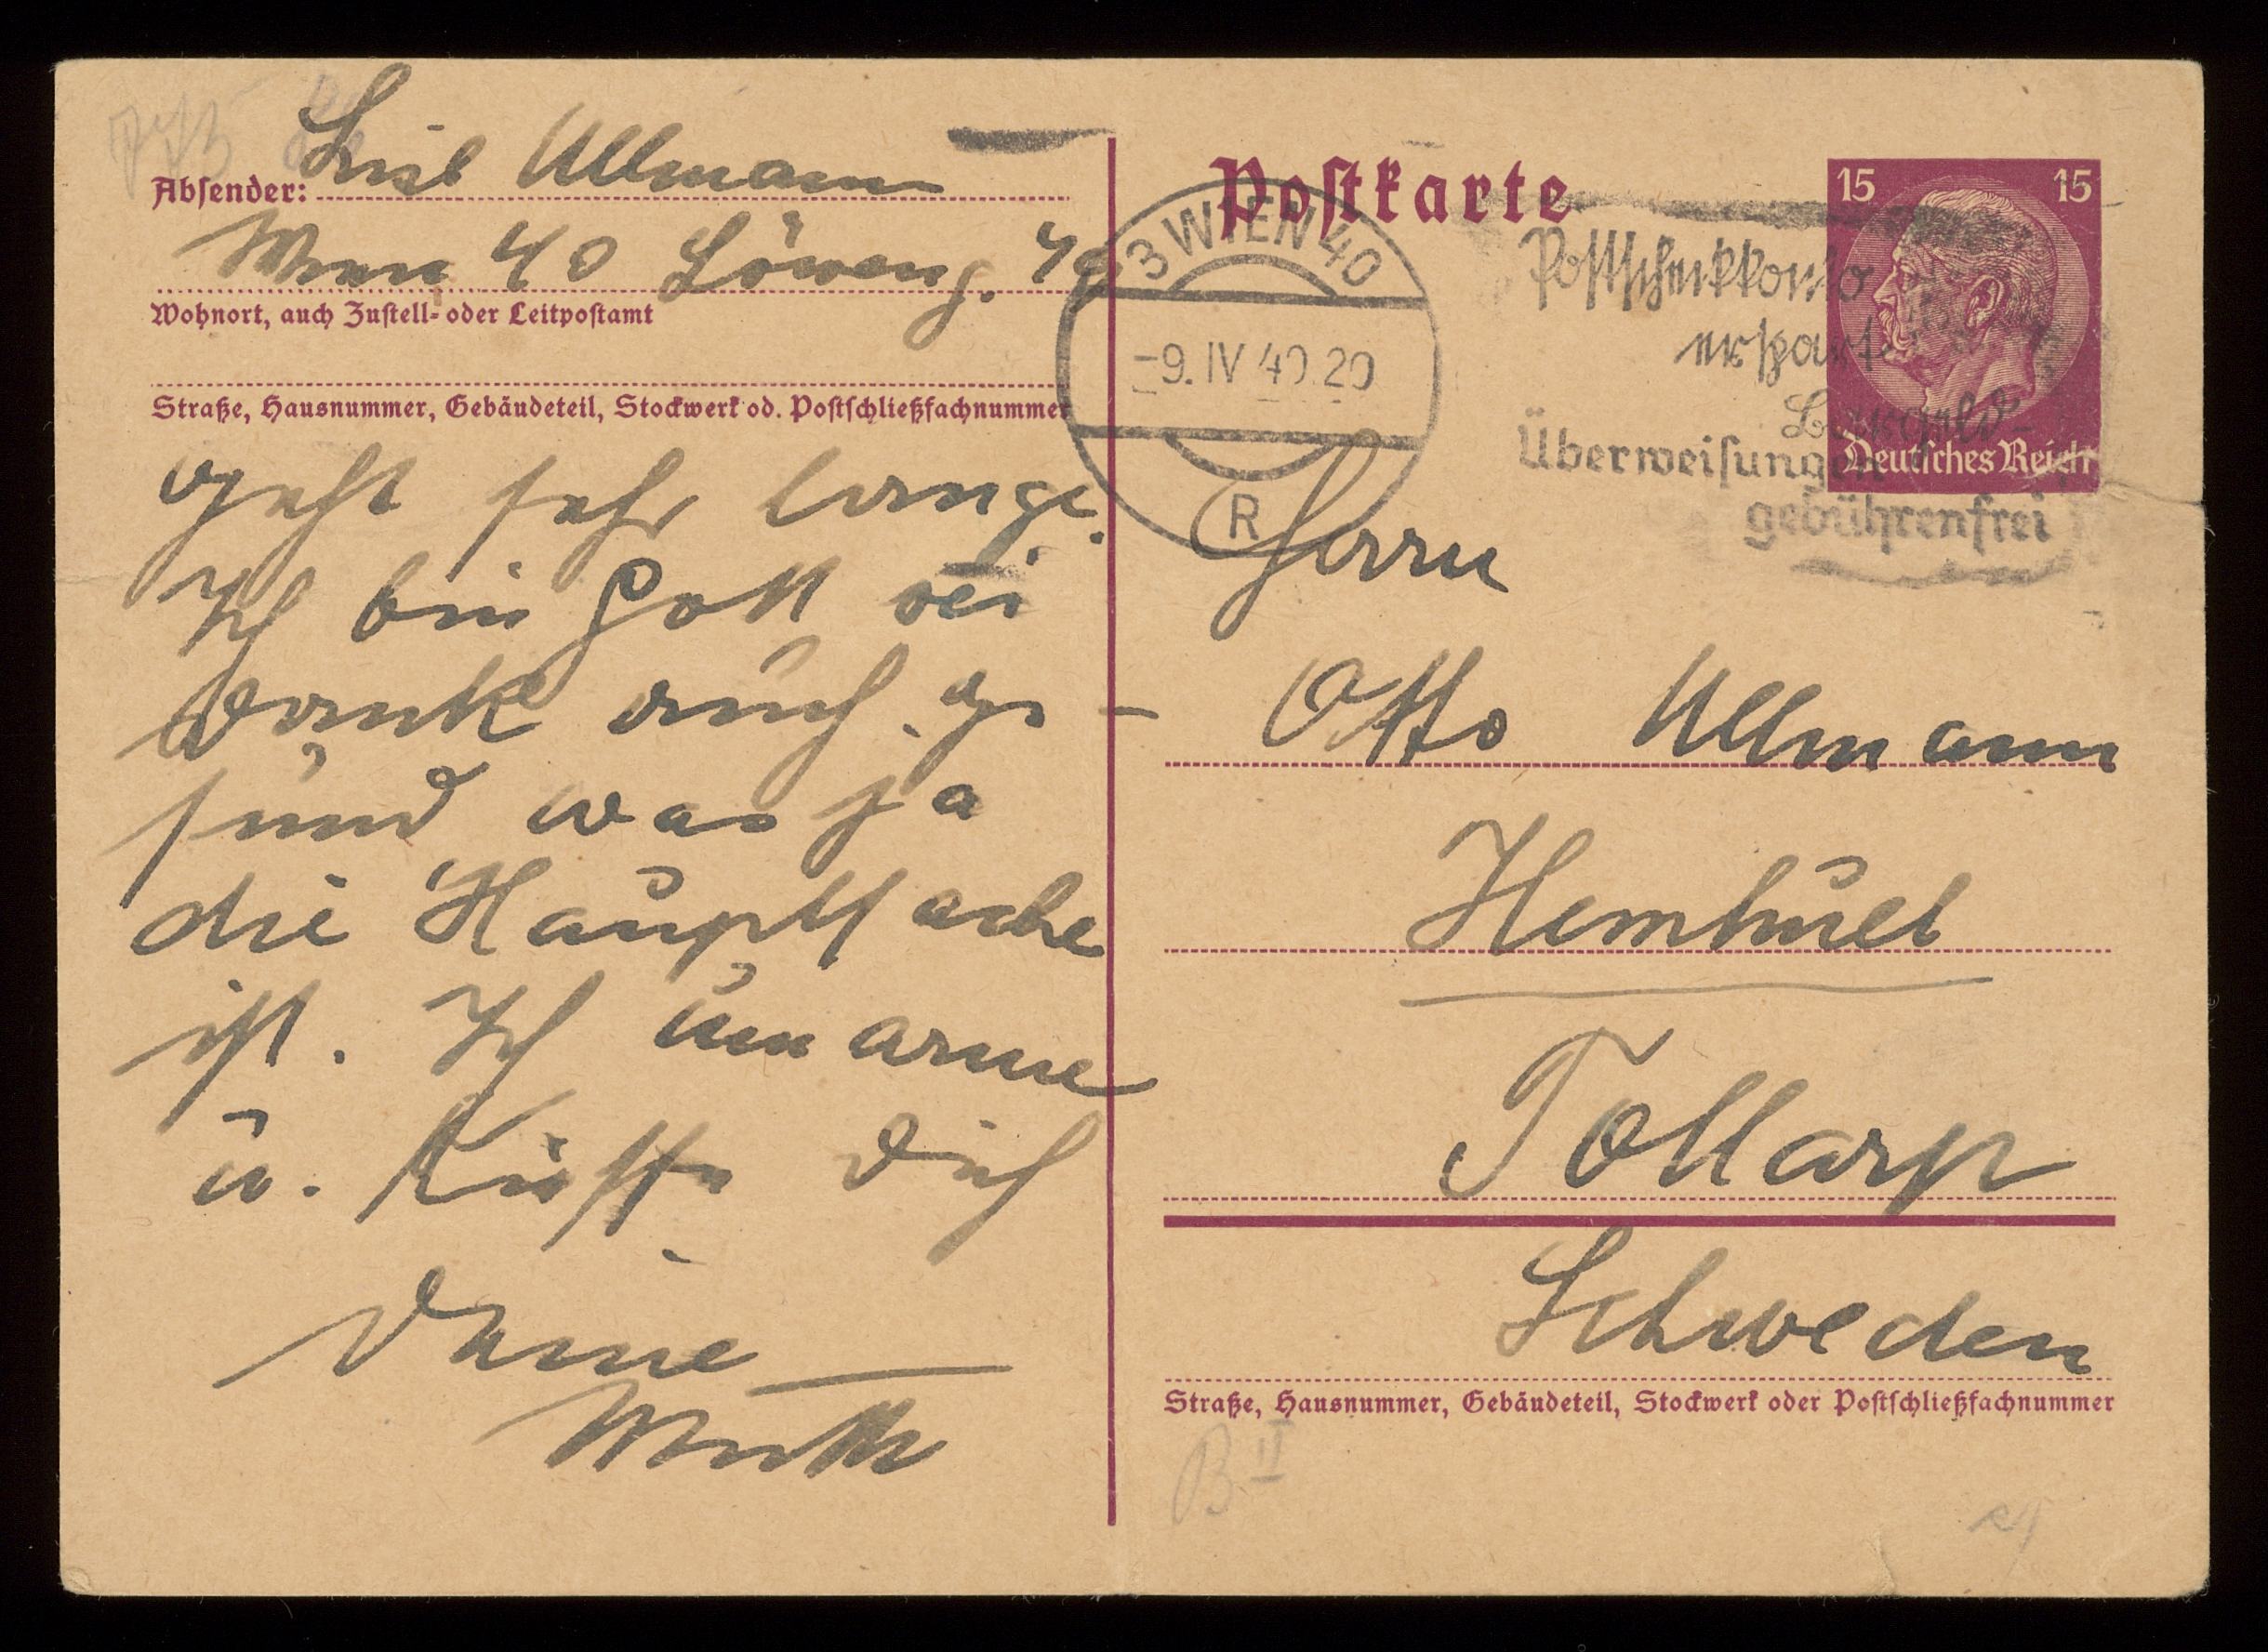 Lisl Ullmann
Absender:
Wien 40 Löweng. 49
Wohnort, auch Zustell- oder Leitpostamt
Straße, Hausnummer, Gebäudeteil, Stockwerk od. Postschließfachnummer
geht sehr lange.
Ich bin Gott sei
Dank auch ge-
sund was ja
die Hauptsache
ist. Ich umarme
u. Küsse Dich
Deine
Mutti
Postkarte
15 15
Deutsches Reich
3 WIEN 40
-9. IV 40. 20
R
Postscheckkonto
erspart
Bargeld-
Überweisungen
gebührenfrei
Herrn
Otto Ullmann
Hemhult
Tollarp
Schweden
Straße, Hausnummer, Gebäudeteil, Stockwerk oder Postschließfachnummer
B II